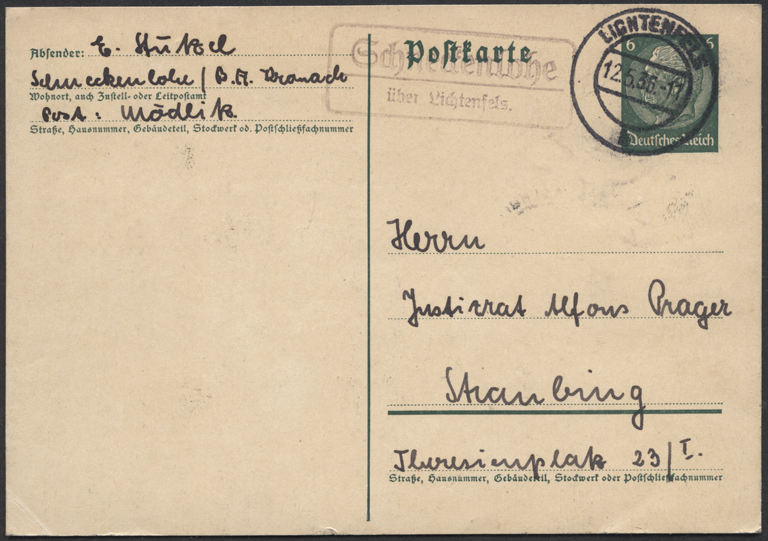 Absender: E. Stukel
Schneckenlohe / B.A. Kronach
Wohnort, auch Zustell- oder Leitpostamt
Post: Mödlitz
Straße, Hausnummer, Gebäudeteil, Stockwerk od. Postschließfachnummer
Postkarte
Schneckenlohe
über Lichtenfels.
LICHTENFELS
12.5.36.-17
6 6
Deutsches Reich
Herrn
Justizrat Alfons Prager
Straubing
Theresienplatz 23/I.
Straße, Hausnummer, Gebäudeteil, Stockwerk oder Postschließfachnummer